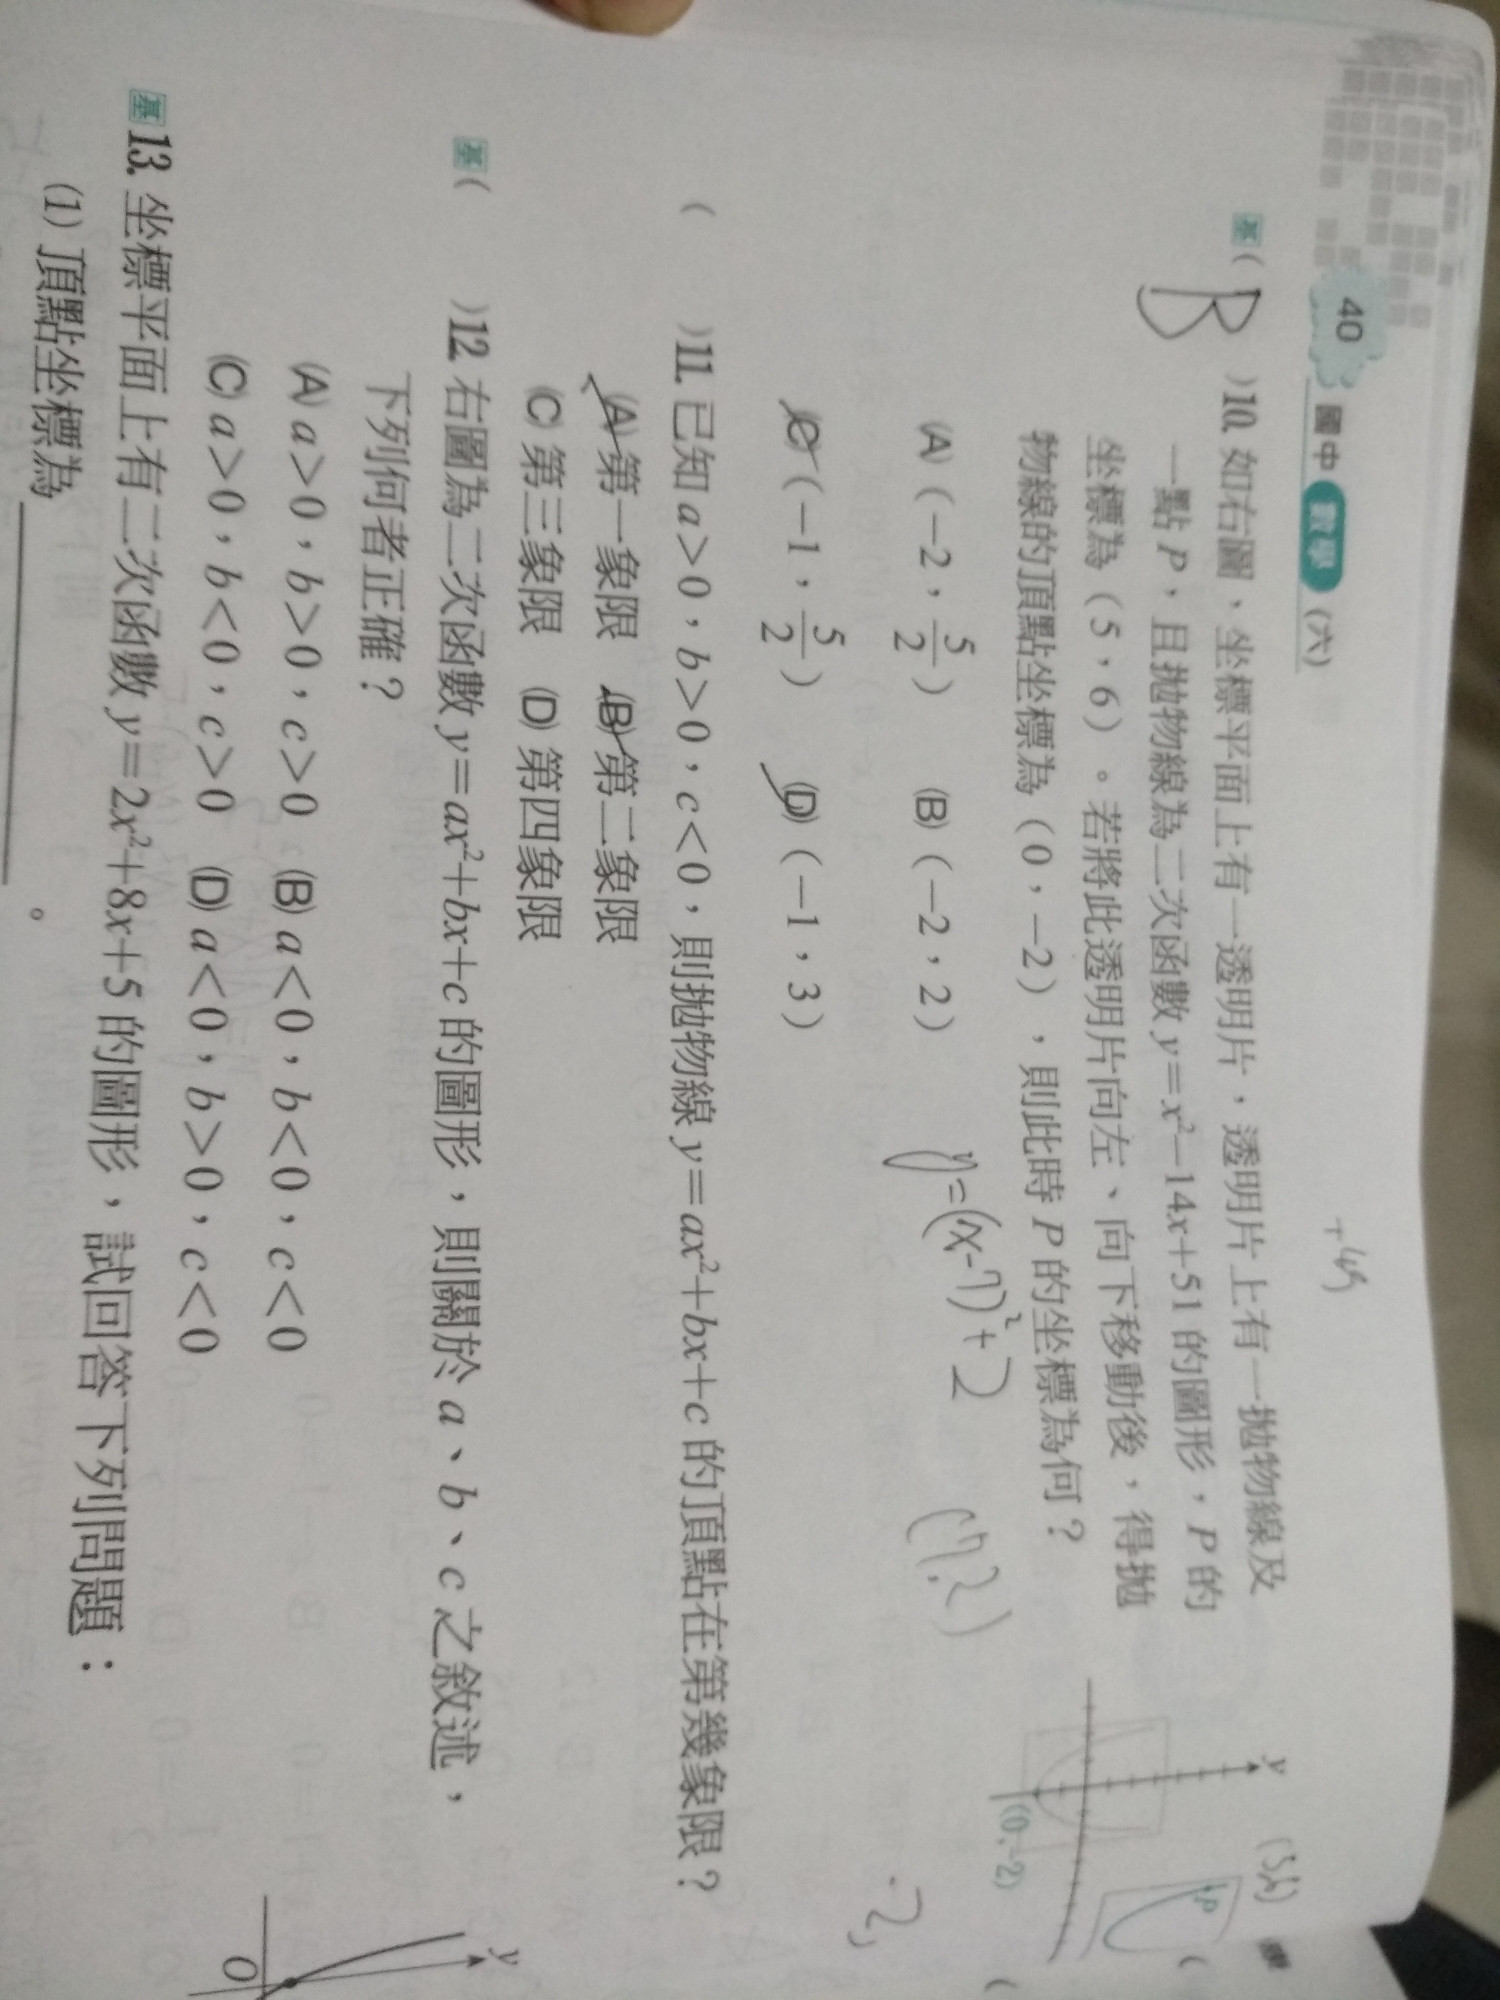 40 國中 數學 (六)
+49
基( B )10. 如右圖，坐標平面上有一透明片，透明片上有一拋物線及
一點 P，且拋物線為二次函數 y=x²−14x+51 的圖形，P 的
坐標為（5，6）。若將此透明片向左、向下移動後，得拋
物線的頂點坐標為（0，−2），則此時 P 的坐標為何？
(A)（−2，5/2） (B)（−2，2）
(C)（−1，5/2） (D)（−1，3）
y=(x-7)²+2 (7,2)
y (5,6)
P
(0,-2)
-2,
( )11. 已知 a>0，b>0，c<0，則拋物線 y=ax²+bx+c 的頂點在第幾象限？
(A) 第一象限 (B) 第二象限
(C) 第三象限 (D) 第四象限
基( )12. 右圖為二次函數 y=ax²+bx+c 的圖形，則關於 a、b、c 之敘述，
下列何者正確？
(A) a>0，b>0，c>0 (B) a<0，b<0，c<0
(C) a>0，b<0，c>0 (D) a<0，b>0，c<0
y
O
基13. 坐標平面上有二次函數 y=2x²+8x+5 的圖形，試回答下列問題：
(1) 頂點坐標為 。